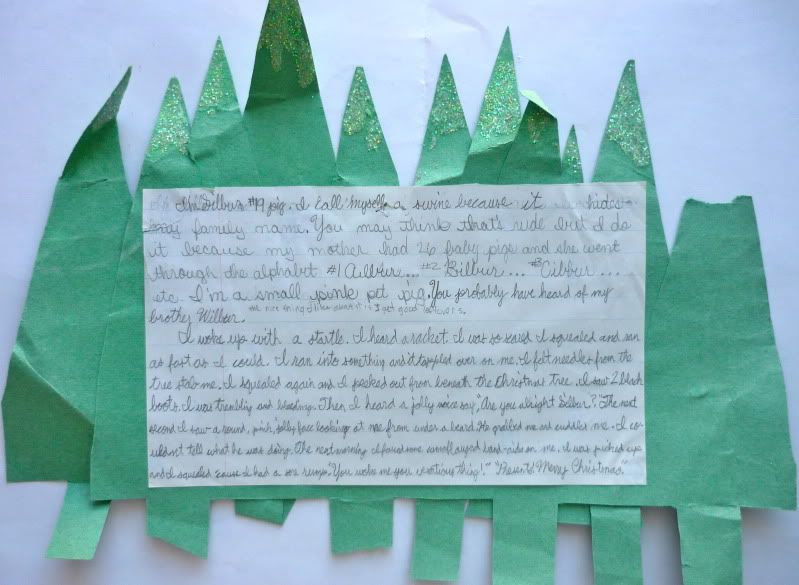 I'm Silbur #19 pig. I call myself a swine because it
my family name. You may think that's rude but I do
it because my mother had 26 baby pigs and she went
through the alphabet #1 Ailbur... #2 Bilbur... #3 Cilbur...
etc. I'm a small pink pet pig. You probably have heard of my
brother Wilbur. the nice thing about it is I get good leftovers.
I woke up with a startle. I heard a racket. I was so I squealed and ran
as fast as I could. I ran into something and it toppled over on me. I felt needles from the
tree stab me. I squealed again and I peeked out from beneath the Christmas tree. I saw 2 black
boots. I was trembling and bleeding. Then I heard a jolly voice say, "Are you alright Silbur?" The next
second I saw a round, pink, jolly face looking at me from under a beard. He grabbed me and cuddled me. I co-
uldn't tell what he was doing. The next morning I found some small hands on me. I was picked up
and I squealed cause I had a sore rump. "You woke me you thing!" "Presents! Merry Christmas."